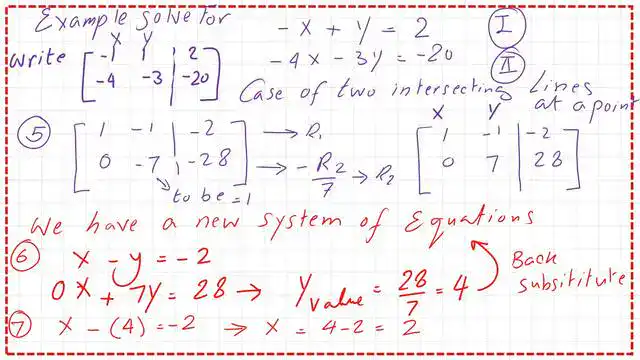 Example solve for
-x + y = 2 I
-4x - 3y = -20 II
X Y
write [ -1 1 | 2
-4 -3 | -20 ]
Case of two intersecting Lines at a point
X Y
5 [ 1 -1 | -2 ] → R1 [ 1 -1 | -2
0 -7 | -28 ] → -R2/7 → R2 0 7 | 28 ]
to be = 1
We have a new system of Equations
6 x - y = -2
0x + 7y = 28 → y value = 28/7 = 4 Back subsititute
7 x - (4) = -2 → x = 4-2 = 2